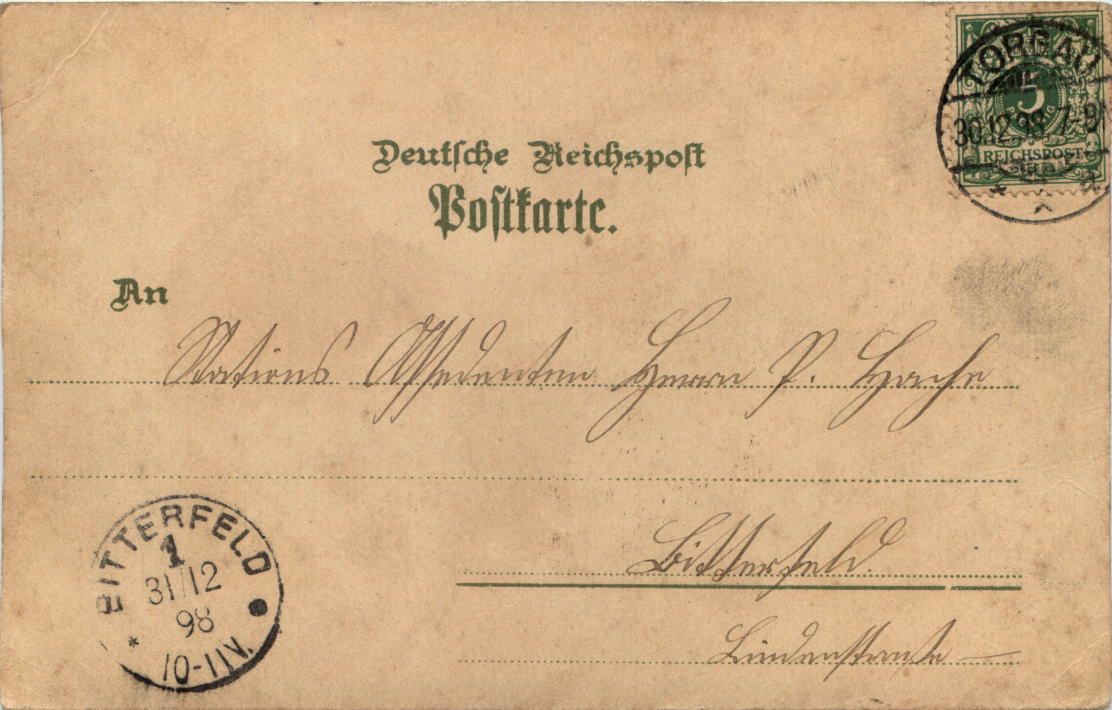 TORGAU
30.12.98 7-8N
5
REICHSPOST
Deutsche Reichspost
Postkarte.
An
Stations Assistenten Herrn P. Hache
Bitterfeld.
Lindenstraße
BITTERFELD
1
31/12
98
10-11V.